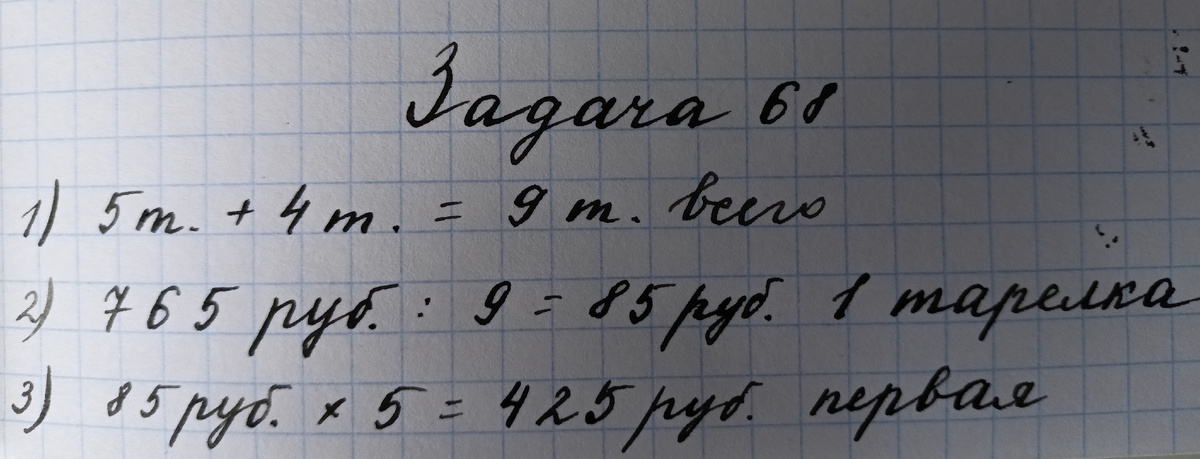 Задача 68
1) 5 т. + 4 т. = 9 т. всего
2) 765 руб. : 9 = 85 руб. 1 тарелка
3) 85 руб. × 5 = 425 руб. первая